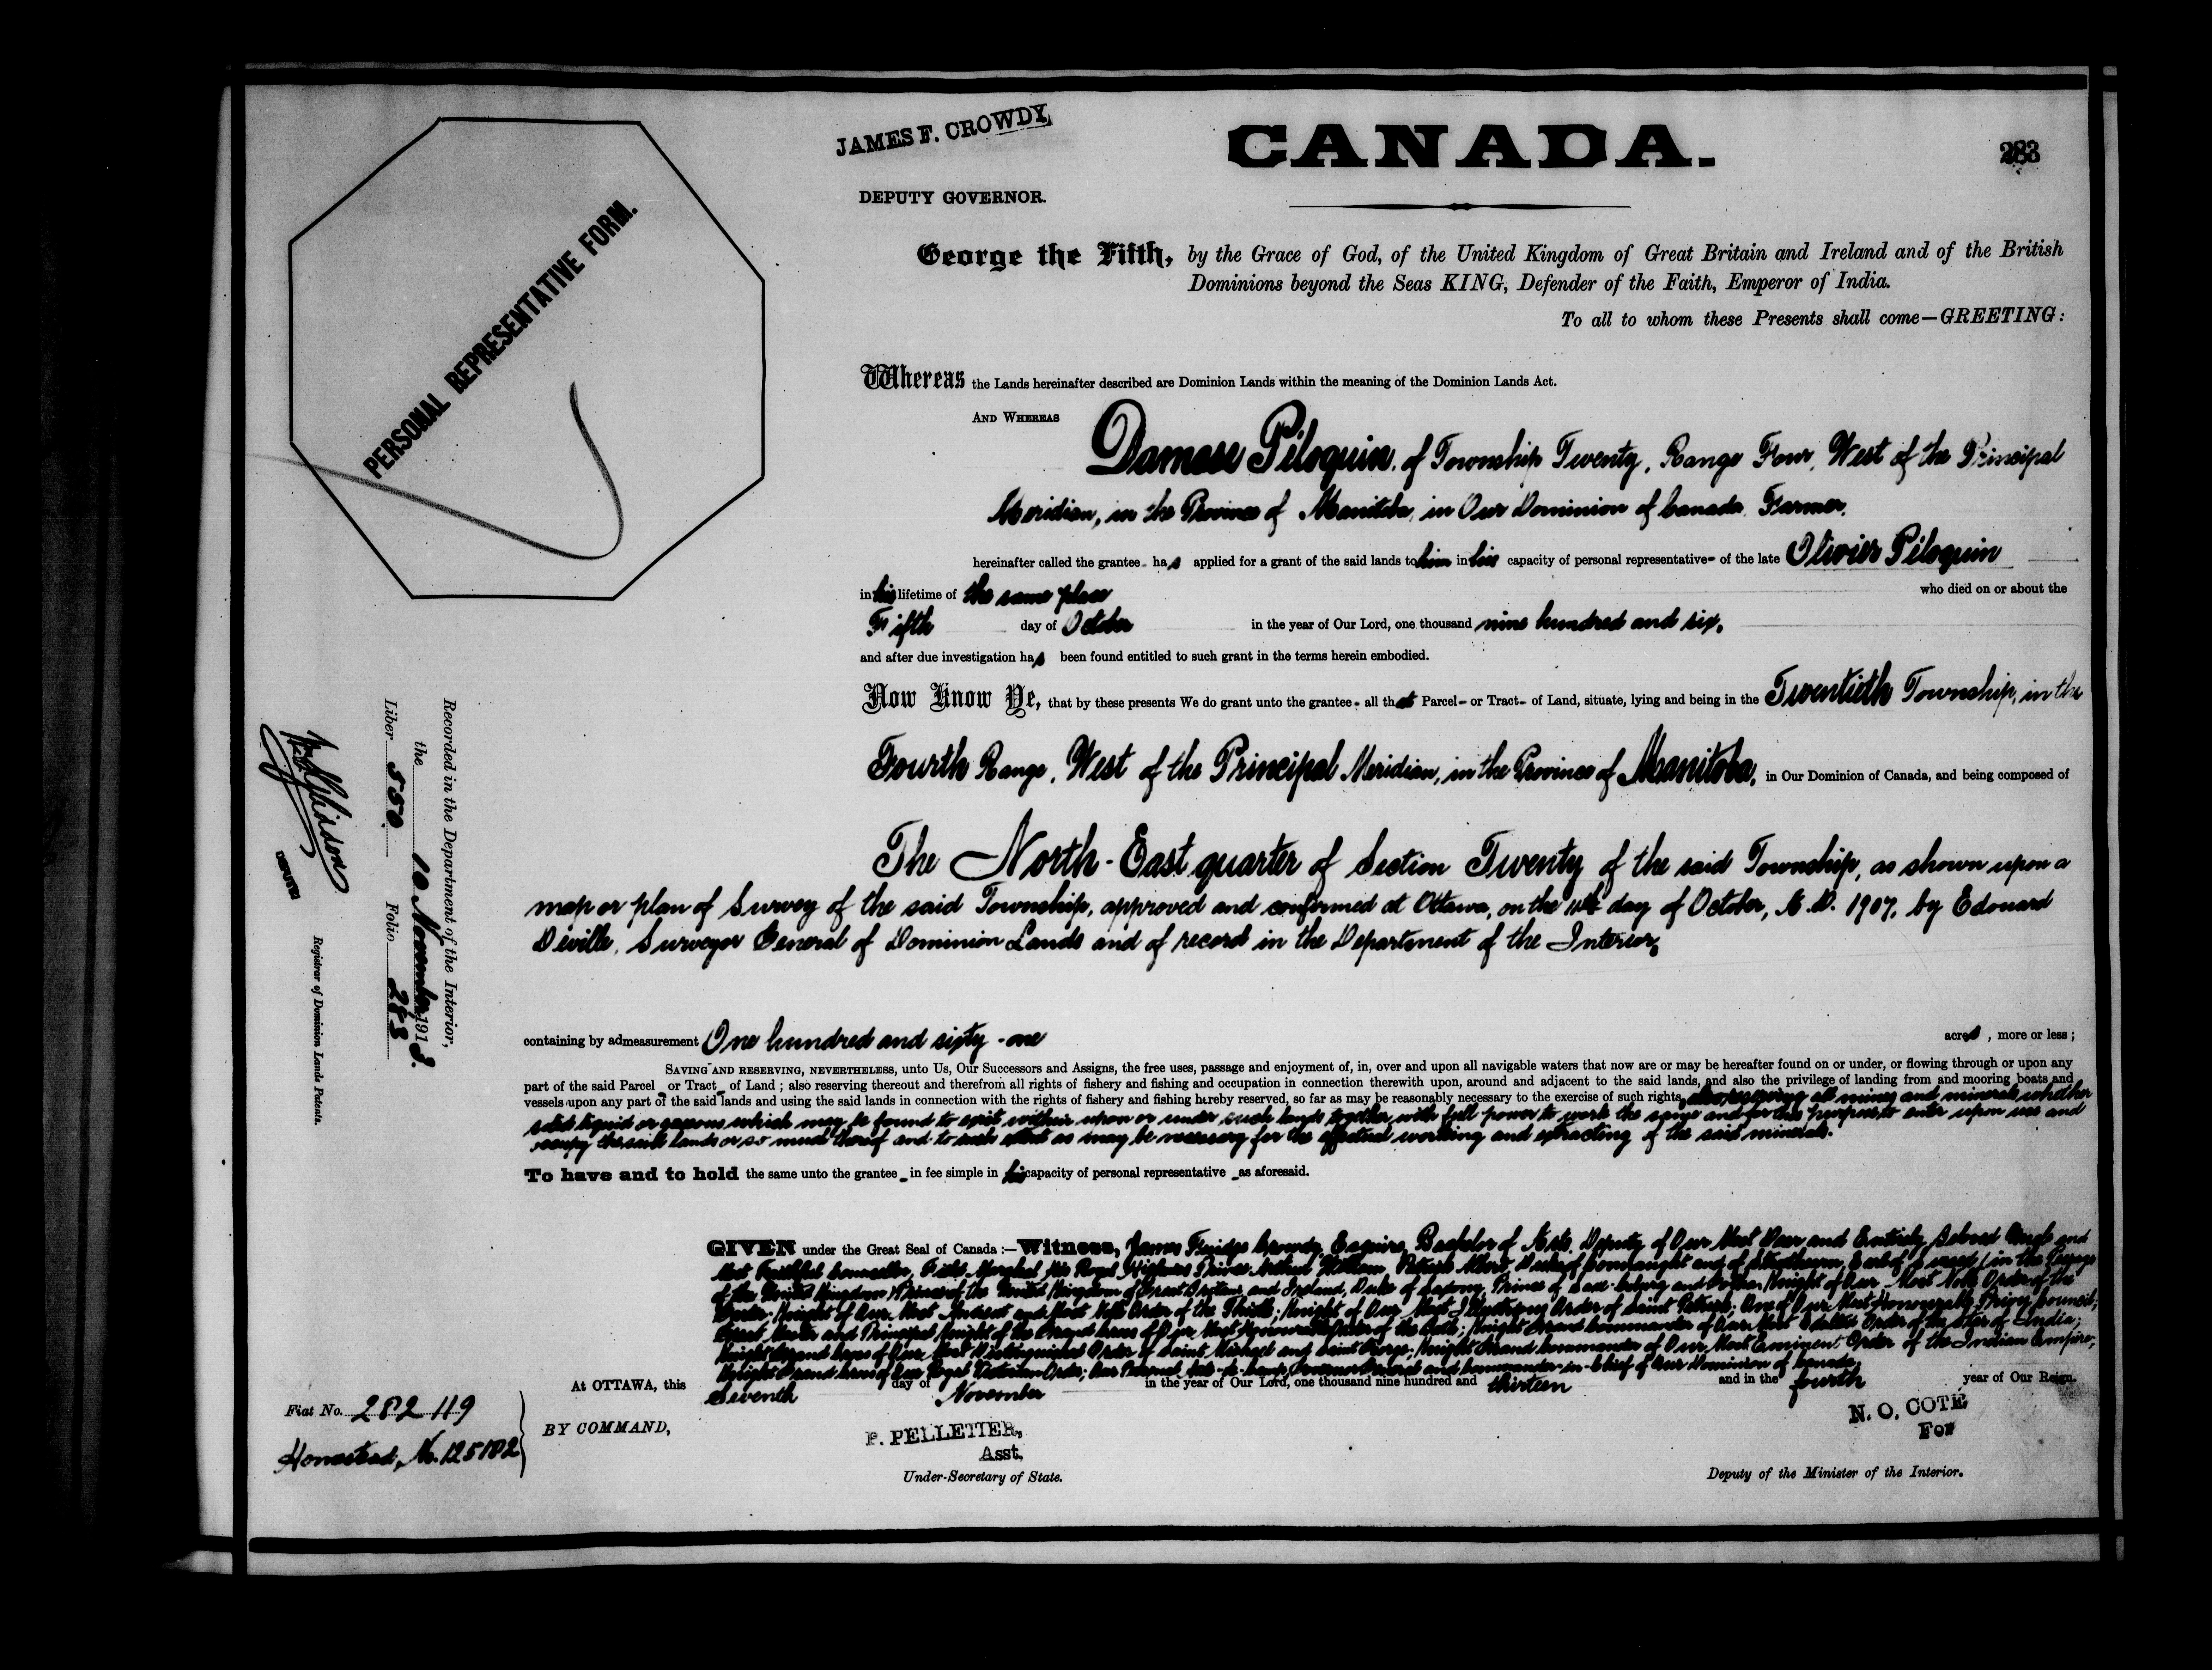 JAMES F. CROWDY,
DEPUTY GOVERNOR.
CANADA.
283
PERSONAL REPRESENTATIVE FORM.
George the Fifth, by the Grace of God, of the United Kingdom of Great Britain and Ireland and of the British
Dominions beyond the Seas KING, Defender of the Faith, Emperor of India.
To all to whom these Presents shall come—GREETING:
Whereas the Lands hereinafter described are Dominion Lands within the meaning of the Dominion Lands Act.
AND WHEREAS Damase Piloquin, of Township Twenty, Range Four, West of the Principal
Meridian, in the Province of Manitoba, in Our Dominion of Canada, Farmer,
hereinafter called the grantee- has applied for a grant of the said lands to him in his capacity of personal representative- of the late Olivier Piloquin
in his lifetime of the same place who died on or about the
Fifth day of October in the year of Our Lord, one thousand nine hundred and six,
and after due investigation has been found entitled to such grant in the terms herein embodied.
Now Know Ye, that by these presents We do grant unto the grantee- all that Parcel- or Tract- of Land, situate, lying and being in the Twentieth Township, in the
Fourth Range, West of the Principal Meridian, in the Province of Manitoba, in Our Dominion of Canada, and being composed of
The North-East quarter of Section Twenty of the said Township, as shown upon a
map or plan of Survey of the said Township, approved and confirmed at Ottawa, on the day of October, A.D. 1907, by Edouard
Deville, Surveyor General of Dominion Lands and of record in the Department of the Interior,
containing by admeasurement One hundred and sixty-one acres, more or less;
SAVING AND RESERVING, NEVERTHELESS, unto Us, Our Successors and Assigns, the free uses, passage and enjoyment of, in, over and upon all navigable waters that now are or may be hereafter found on or under, or flowing through or upon any
part of the said Parcel- or Tract- of Land; also reserving thereout and therefrom all rights of fishery and fishing and occupation in connection therewith upon, around and adjacent to the said lands, and also the privilege of landing from and mooring boats and
vessels upon any part of the said lands and using the said lands in connection with the rights of fishery and fishing hereby reserved, so far as may be reasonably necessary to the exercise of such rights, also reserving all mines and minerals whether
solid liquid or gaseous which may be found to exist within upon or under such lands together with full power to work the same and for this purpose to enter upon use and
occupy the said lands or so much thereof and to such extent as may be necessary for the effectual working and extracting of the said minerals.
To have and to hold the same unto the grantee- in fee simple in his capacity of personal representative- as aforesaid.
GIVEN under the Great Seal of Canada:—Witness, James Crowdy, Esquire, Bachelor of Arts, Deputy of Our Most Dear and Entirely Beloved Uncle and
Most Faithful Counsellor, Field Marshal His Royal Highness Prince Arthur William Patrick Albert Duke of Connaught and of Strathearn, Earl of Sussex (in the Peerage
of the United Kingdom) Prince of the United Kingdom of Great Britain and Ireland, Duke of Saxony, Prince of Saxe-Coburg and Gotha; Knight of Our Most Noble Order of the
Garter; Knight of Our Most Ancient and Most Noble Order of the Thistle; Knight of Our Most Illustrious Order of Saint Patrick; One of Our Most Honourable Privy Council;
Great Master and Principal Knight of the Grand Cross of Our Most Honourable Order of the Bath; Knight Grand Commander of Our Most Exalted Order of the Star of India;
Knight Grand Cross of Our Most Distinguished Order of Saint Michael and Saint George; Knight Grand Commander of Our Most Eminent Order of the Indian Empire;
Knight Grand Cross of Our Royal Victorian Order; Our Personal Aide-de-Camp; Governor General and Commander-in-Chief of Our Dominion of Canada
At OTTAWA, this Seventh day of November in the year of Our Lord, one thousand nine hundred and thirteen and in the fourth year of Our Reign.
BY COMMAND,
P. PELLETIER,
Asst.
Under-Secretary of State.
N. O. COTE
For
Deputy of the Minister of the Interior.
Fiat No. 282119
Homestead, No. 125182
Recorded in the Department of the Interior,
the 10 November 1913.
Liber 550 Folio 283
DEPUTY
Registrar of Dominion Lands Patents.